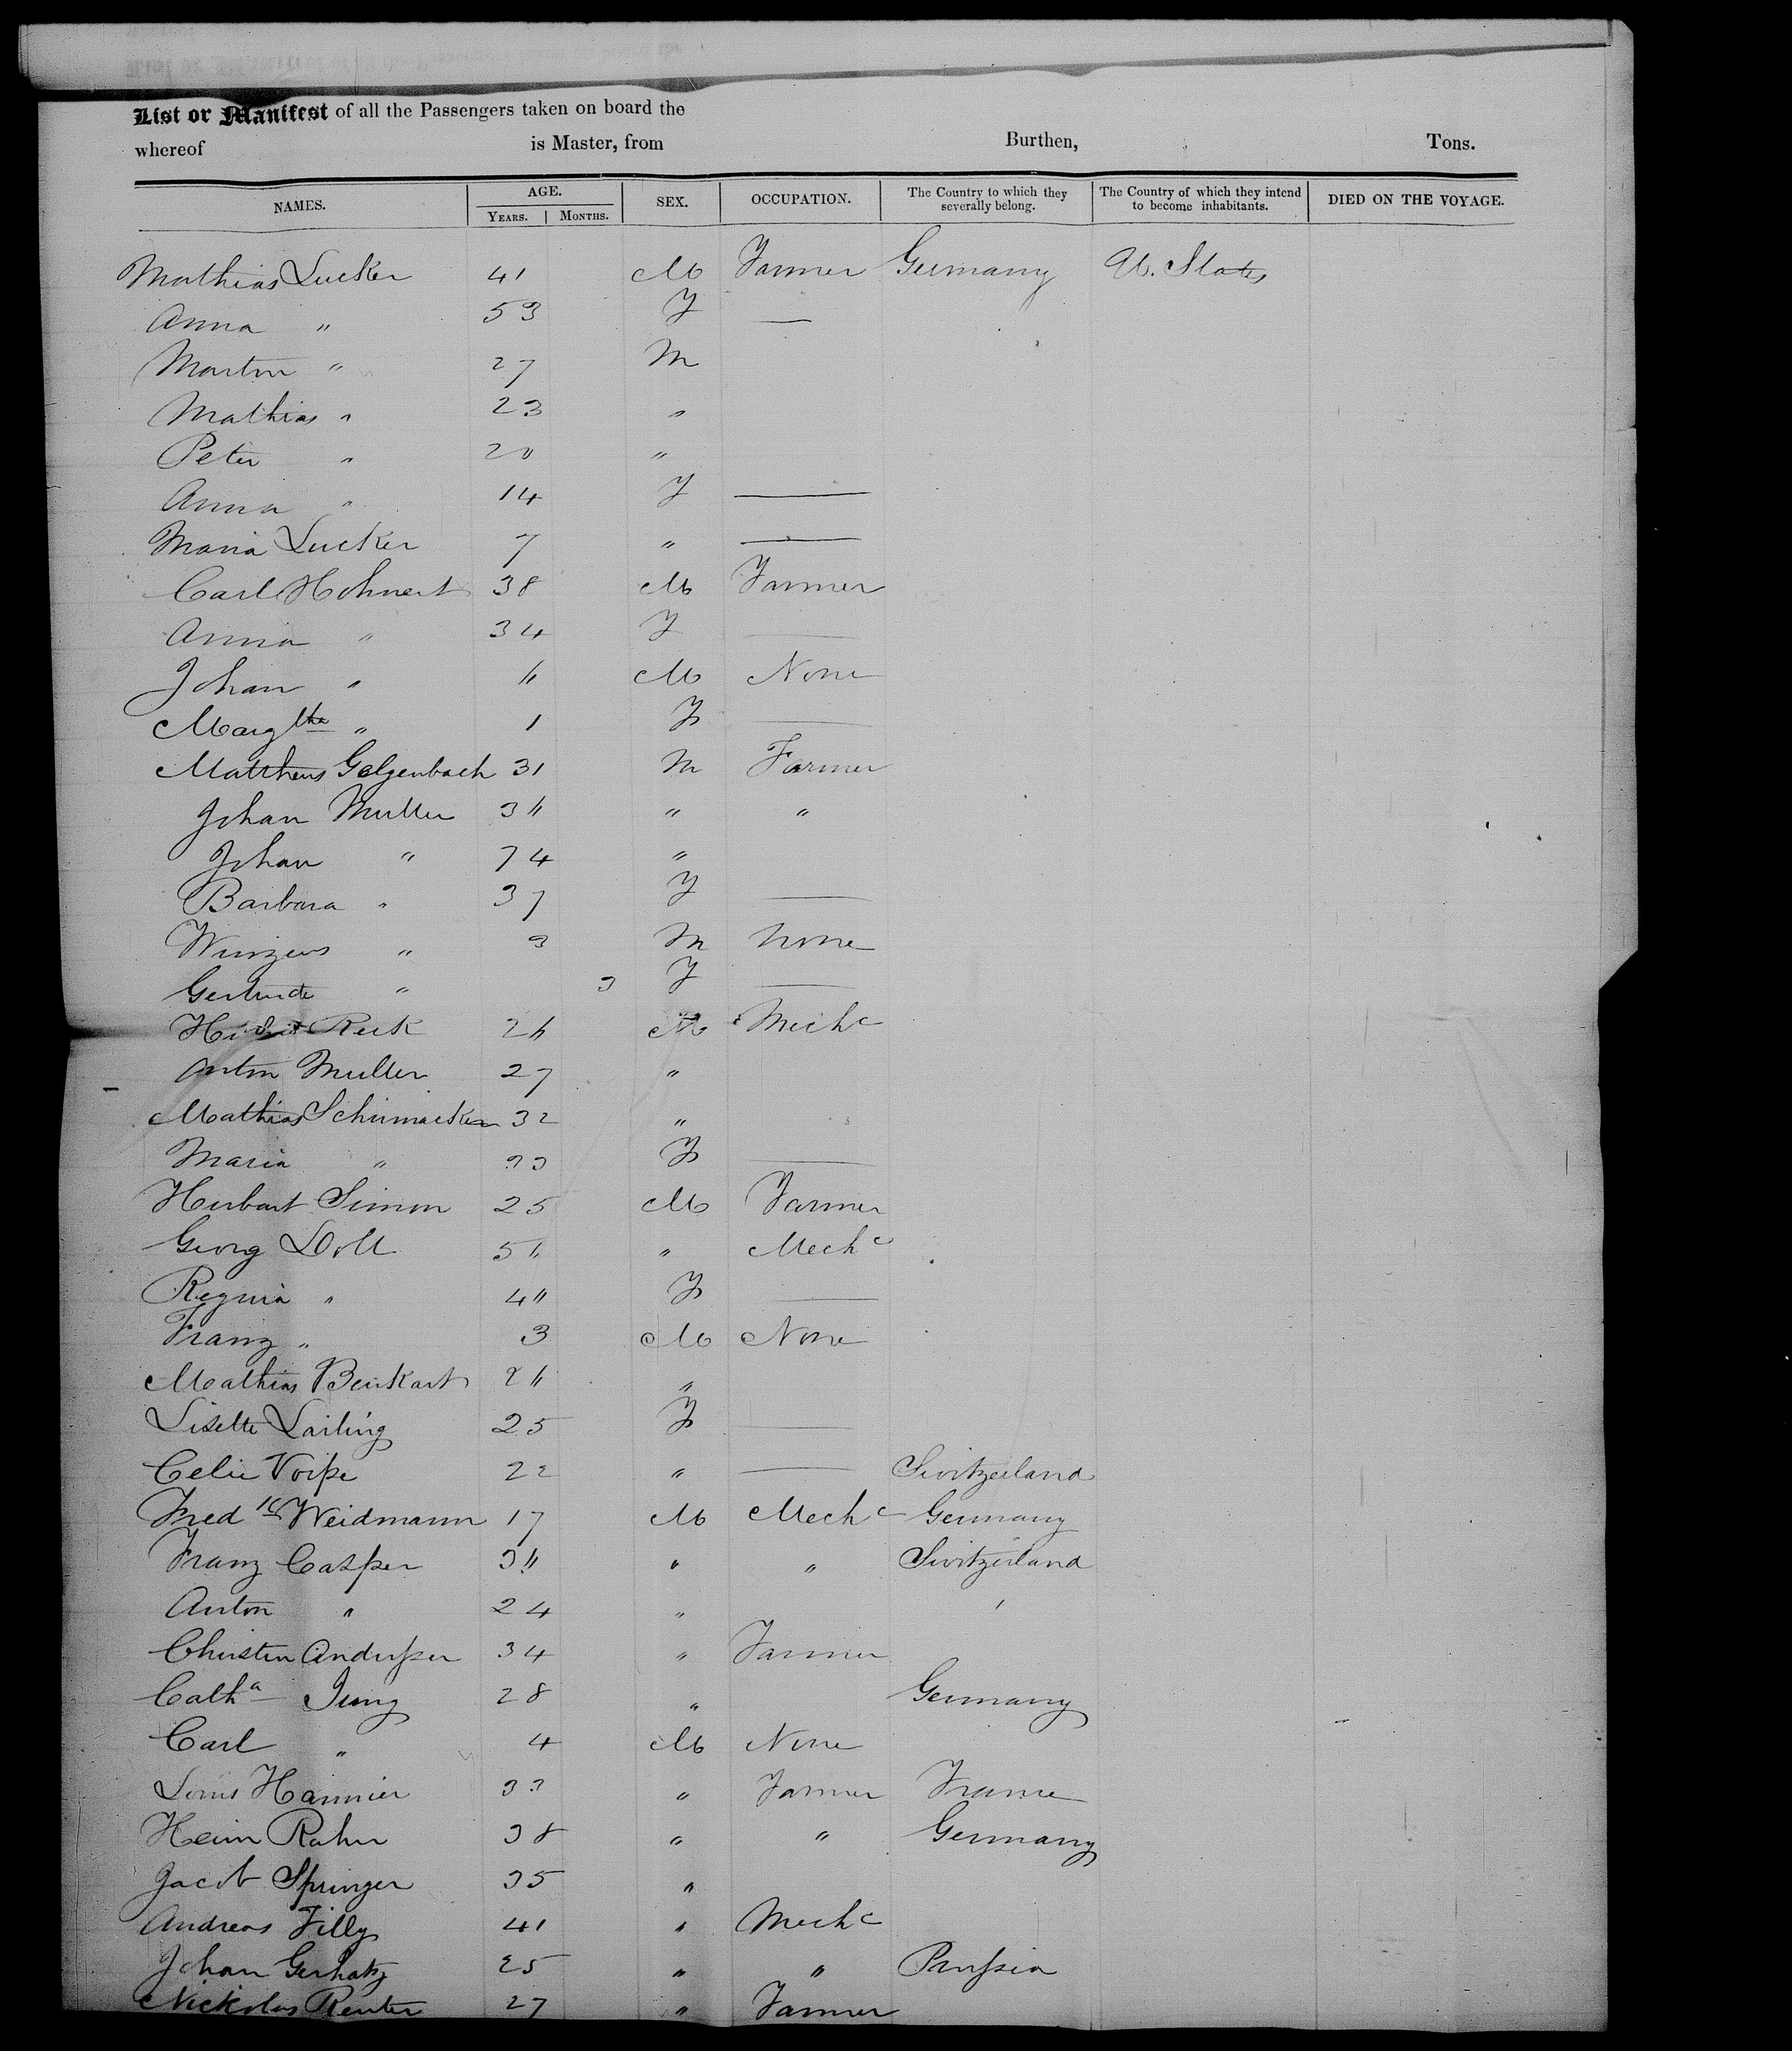 List or Manifest of all the Passengers taken on board the
whereof is Master, from Burthen, Tons.
NAMES. AGE. YEARS. MONTHS. SEX. OCCUPATION. The Country to which they severally belong. The Country of which they intend to become inhabitants. DIED ON THE VOYAGE.
Mathias Lucker 41 M Farmer Germany U. States
Anna " 53 F —
Martin " 27 M
Mathias " 23 "
Peter " 20 "
Anna " 14 F —
Maria Lucker 7 " —
Carl Hohnert 38 M Farmer
Anna " 34 F —
Johan " 6 M None
Margtha " 1 F —
Mattheus Galgenbach 31 M Farmer
Johan Muller 36 " "
Johan " 74 "
Barbara " 37 F —
Winzens " 3 M None
Gertrude " 3 F —
Reck 26 M Mechc
Anton Muller 27 "
Mathias Schumacker 32 "
Maria " 33 F —
Herbart Simon 25 M Farmer
Georg Doll 56 " Mechc
Regina " 46 F —
Franz " 3 M None
Mathias Benkart 26 "
Lisette Lailing 25 F —
Celie Vorpe 22 " — Switzerland
Fredk Weidmann 17 M Mechc Germany
Franz Casper 36 " " Switzerland
Anton " 24 "
Christen 34 " Farmer
Catha Jung 28 " Germany
Carl " 4 M None
Louis Hannier 33 " Farmer France
Heinr Rahn 38 " " Germany
Jacob Springer 35 "
Andreas Filly 41 " Mechc
Johan Gerhatz 25 " " Prussia
Nickolas Reuter 27 " Farmer